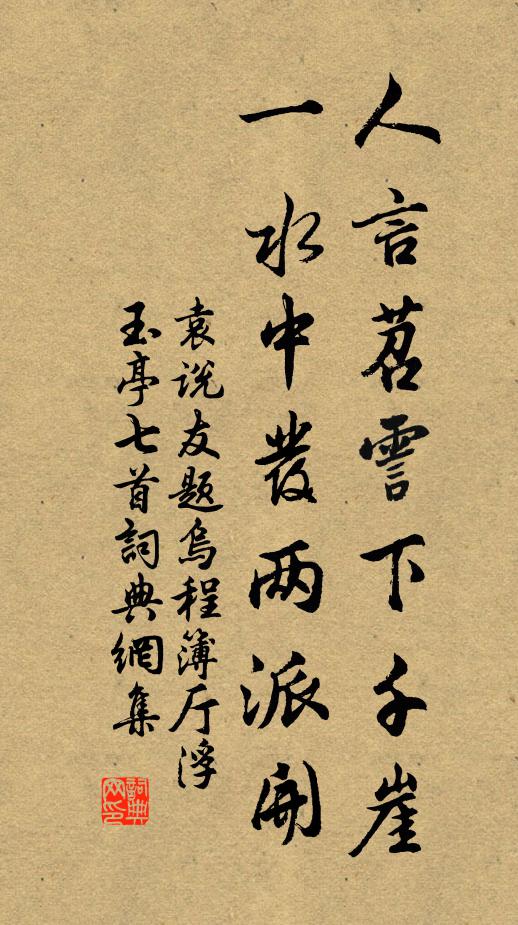 人言苕霅下千崖
一水中發两派開
袁说友题烏程簿厅浮
玉亭七首詞典網集
詞典网印